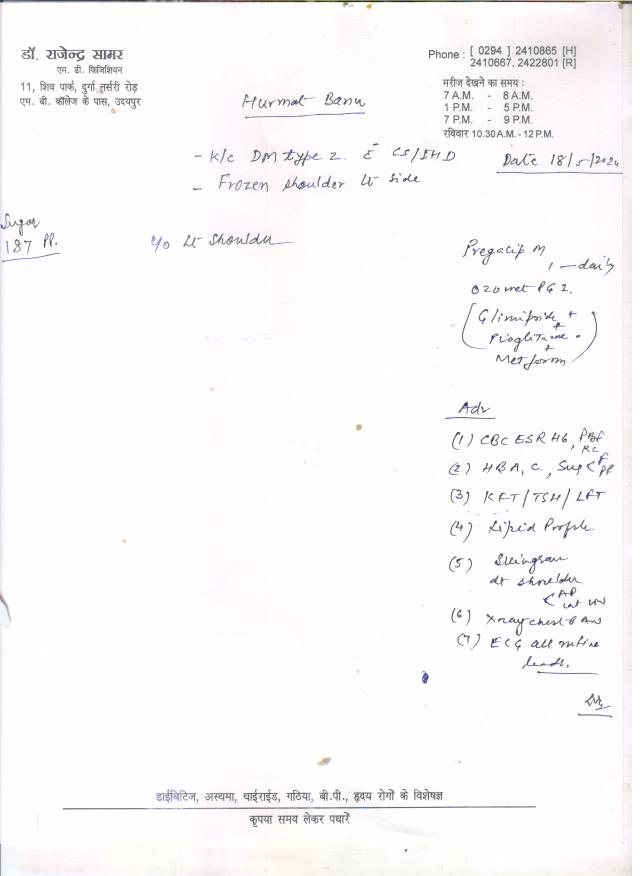 डॉ. राजेन्द्र सामर
एम. डी. फिजिशियन
11, शिव पार्क, दुर्गा नर्सरी रोड़
एम. बी. कॉलेज के पास, उदयपुर
Phone : [ 0294 ] 2410865 [H]
2410667, 2422801 [R]
मरीज देखने का समय :
7 A.M. - 8 A.M.
1 P.M. - 5 P.M.
7 P.M. - 9 P.M.
रविवार 10.30 A.M. - 12 P.M.
Hurmat Banu
Date 18/5/2024
- K/c DM type 2. c̄ CS/IHD
- Frozen shoulder Lt side
Sugar
187 PP.
c/o Lt shoulder
Pregaclip M
1 — daily
Ozomet PG 2.
(Glimipride +
Pioglitazone +
Metformin)
Adv
(1) CBC ESR Hb, PBF
(2) HBA1C, Sug < F PP
(3) KFT/TSH/LFT
(4) Lipid Profile
(5)
shoulder
< AP
(6) Xray chest PA
(7) ECG all
leads.
डाईबिटिज, अस्थमा, थाईराईड, गठिया, बी.पी., हृदय रोगों के विशेषज्ञ
कृपया समय लेकर पधारें